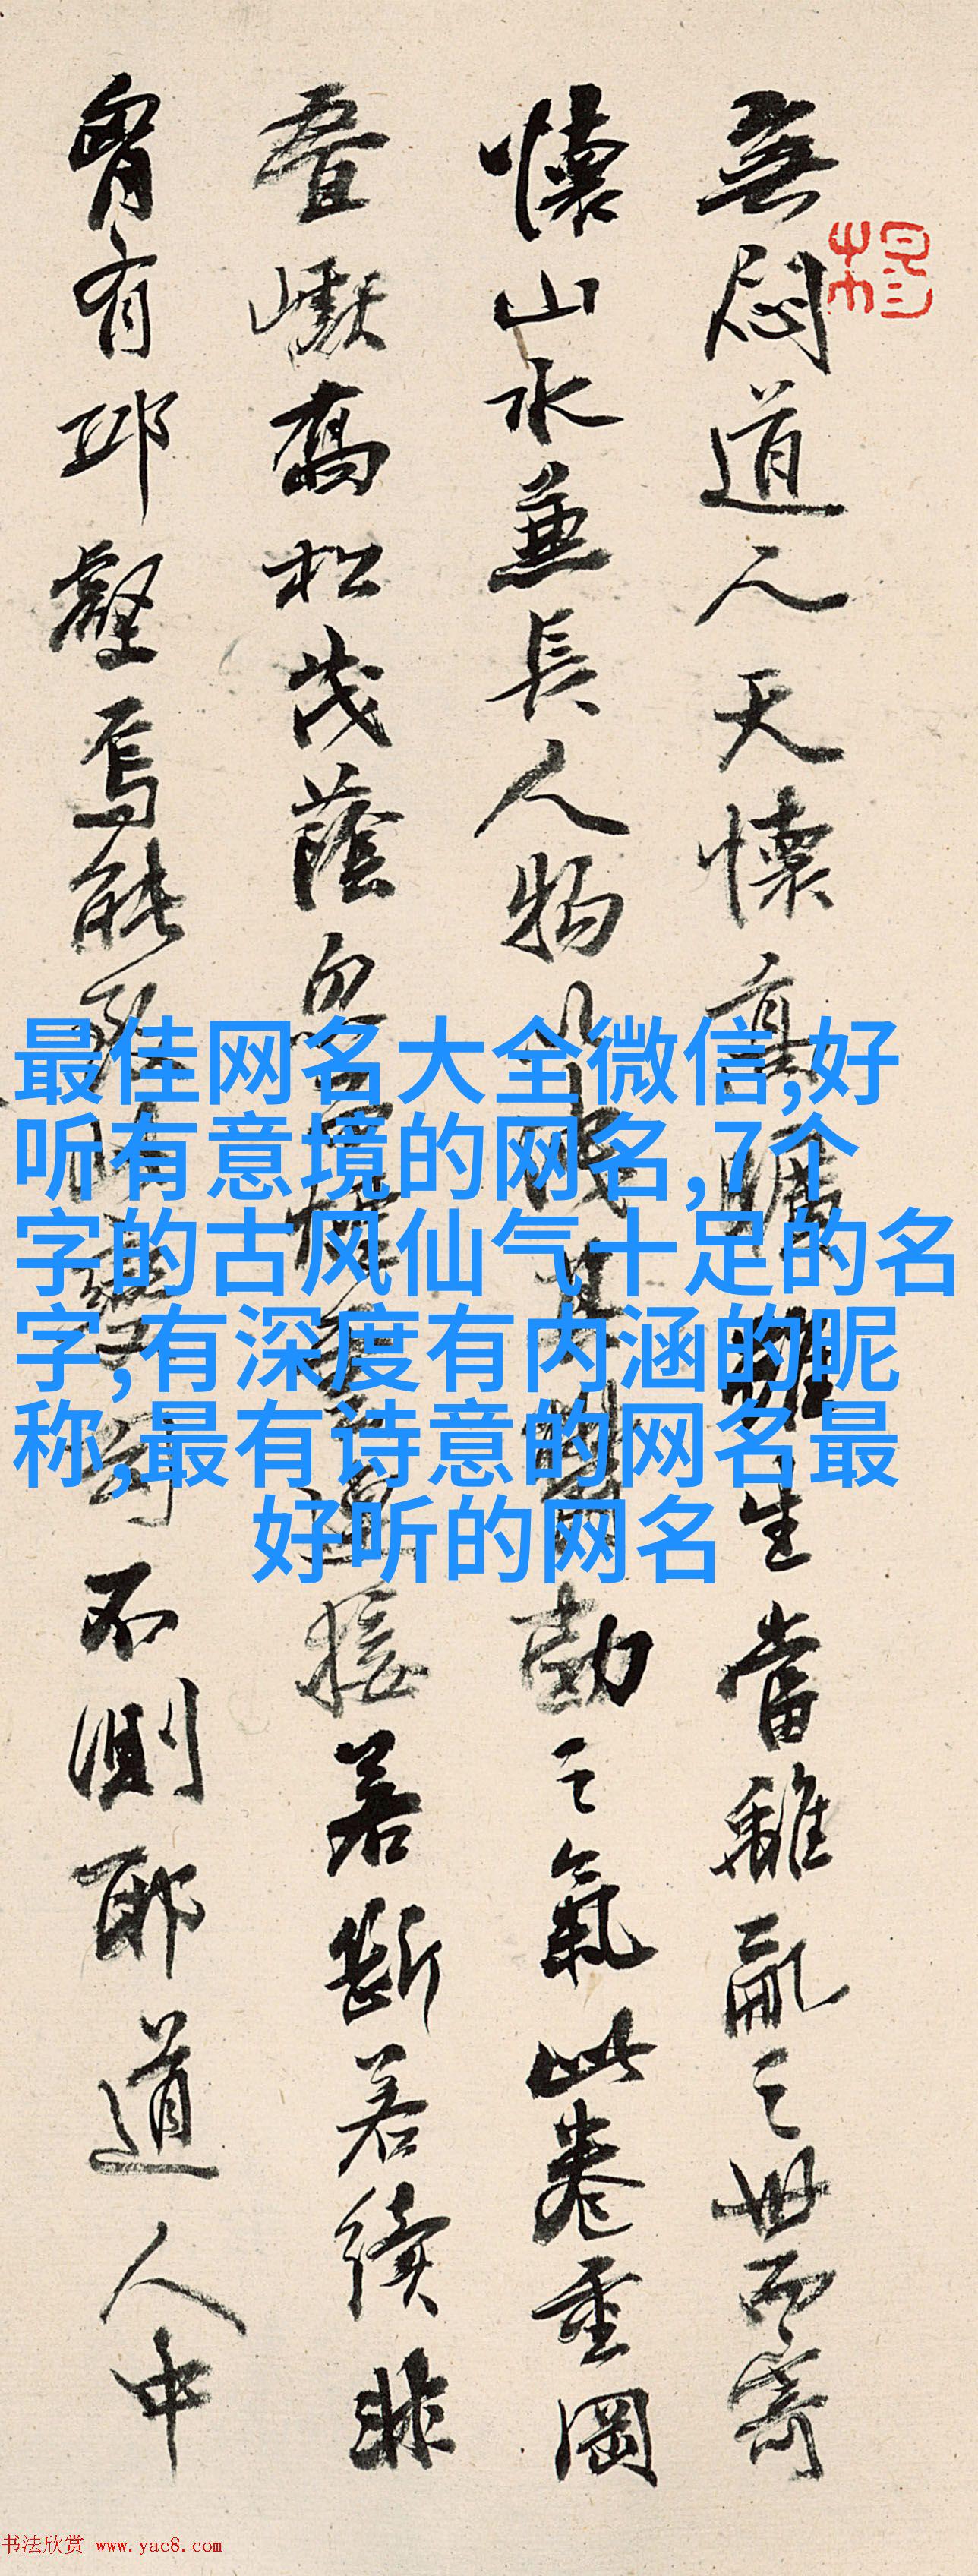 無悶道人天懷高曠雖生當離亂之世而寄
懷山水兼長人物以成其勃之氣此卷重岡
疊巘喬松茂蔭接若斷若續非
胷有邱壑焉能不測耶道人中
最佳网名大全微信,好
听有意境的网名,7个
字的古风仙气十足的名
字,有深度有内涵的昵
称,最有诗意的网名最
好听的网名
书法欣赏 www.yac8.com